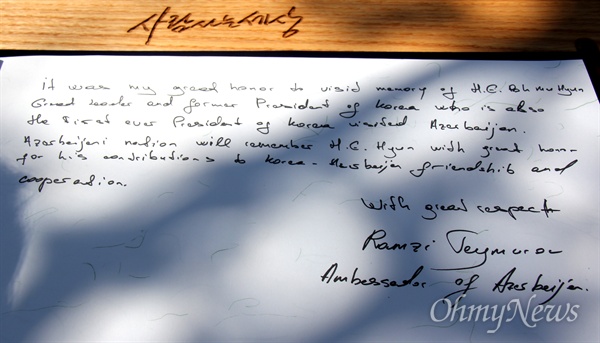 사람사는세상
It was my great honor to visit memory of H.E. Roh Mu Hyun
Great leader and former President of Korea who is also
the First ever President of Korea visited Azerbaijan.
Azerbaijani nation will remember H.E. Hyun with great honor
for his contributions to Korea-Azerbaijan friendship and
cooperation.
With great respect
Ramzi Teymurov
Ambassador of Azerbaijan.
OhmyNews